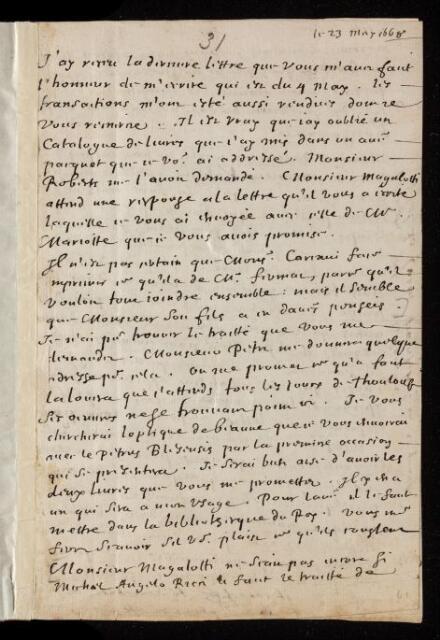 31
le 23 may 1668
J'ay receu la derniere lettre que vous m'aues fait
l'honneur de m'escrire qui est du 4 may. les
transactions m'ont esté aussi rendues dont ie
vous remercie. Il est vray que i'ay oublié un
Catalogue de liures que i'ay mis dans un autre
pacquet que ie vo9 ai addressé. Monsieur
Roberts me l'auoit demandé. Monsieur Magalotti
attend une response a la lettre qu'il vous a escrite
laquelle ie vous ai enuoyée auec celle de Mr.
Mariotte que ie vous auois promise.
Il n'est pas certain que Mons. Carcaui face
imprimer ce qu'il a de Mr. fermat, parce qu'il
vouloit tout ioindre ensemble: mais il semble
que Monsieur son fils a en d'autres pensees.
Je n'ai pu trouuer le traitté que vous me
demandes. Monsieur Petit me donnera quelque
adresse pr. cela. On me promet ce qu'a fait
la louera que i'attends tous les iours de Thoulouse
ses oeuures ne se trouuant point ici. Je vous
chercherai l'optique de beaune que ie vous enuoierai
auec le Petrus Blesensis par la premiere occasion
qui se presentera. Je serai bien aise d'auoir les
deux liures que vous me promettes. Il y en a
un qui sera a mon usage. Pour l'autre il le faut
mettre dans la bibliotheque du Roy. vous me
feres scauoir s'il vo. plaist ce qu'ils coustent
Monsieur Magalotti ne scait pas encore si
Michel Angelo Ricci a fait le traitté de